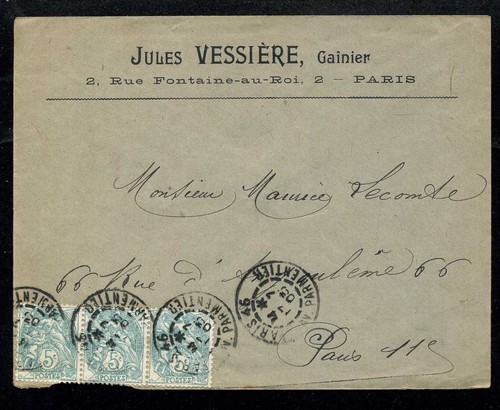 JULES VESSIÈRE, Gaînier
2, Rue Fontaine-au-Roi, 2 – PARIS
Monsieur Maurice Lecomte
66 Rue d'Angoulême 66
Paris 11e
PARIS 46
Av PARMENTIER
03
5c 5c 5c
POSTES POSTES POSTES